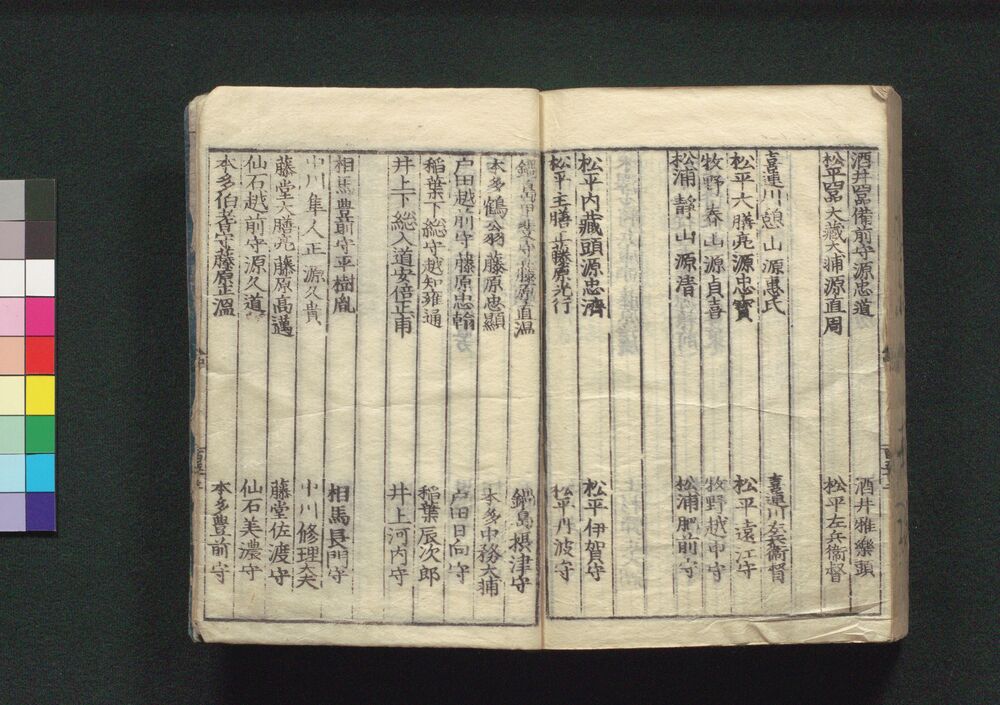 酒井備前守源忠道　酒井雅樂頭
松平大藏大輔源直周　松平左兵衞督
喜連川憩山源惠氏　喜連川左兵衞督
松平大膳亮源忠寶　松平遠江守
牧野春山源貞喜　牧野越中守
松浦靜山源清　松浦肥前守
松平内藏頭源忠濟　松平伊賀守
松平主膳正藤原光行　松平丹波守
鍋島甲斐守藤原直温　鍋島摂津守
本多鶴翁藤原忠顯　本多中務大輔
戸田越前守藤原忠翰　戸田日向守
稲葉下総守越知雍通　稲葉辰次郎
井上下総入道安倍正甫　井上河内守
相馬豊前守平樹胤　相馬長門守
中川隼人正源久貴　中川修理大夫
藤堂大膳亮藤原高邁　藤堂佐渡守
仙石越前守源久道　仙石美濃守
本多伯耆守藤原正温　本多豊前守